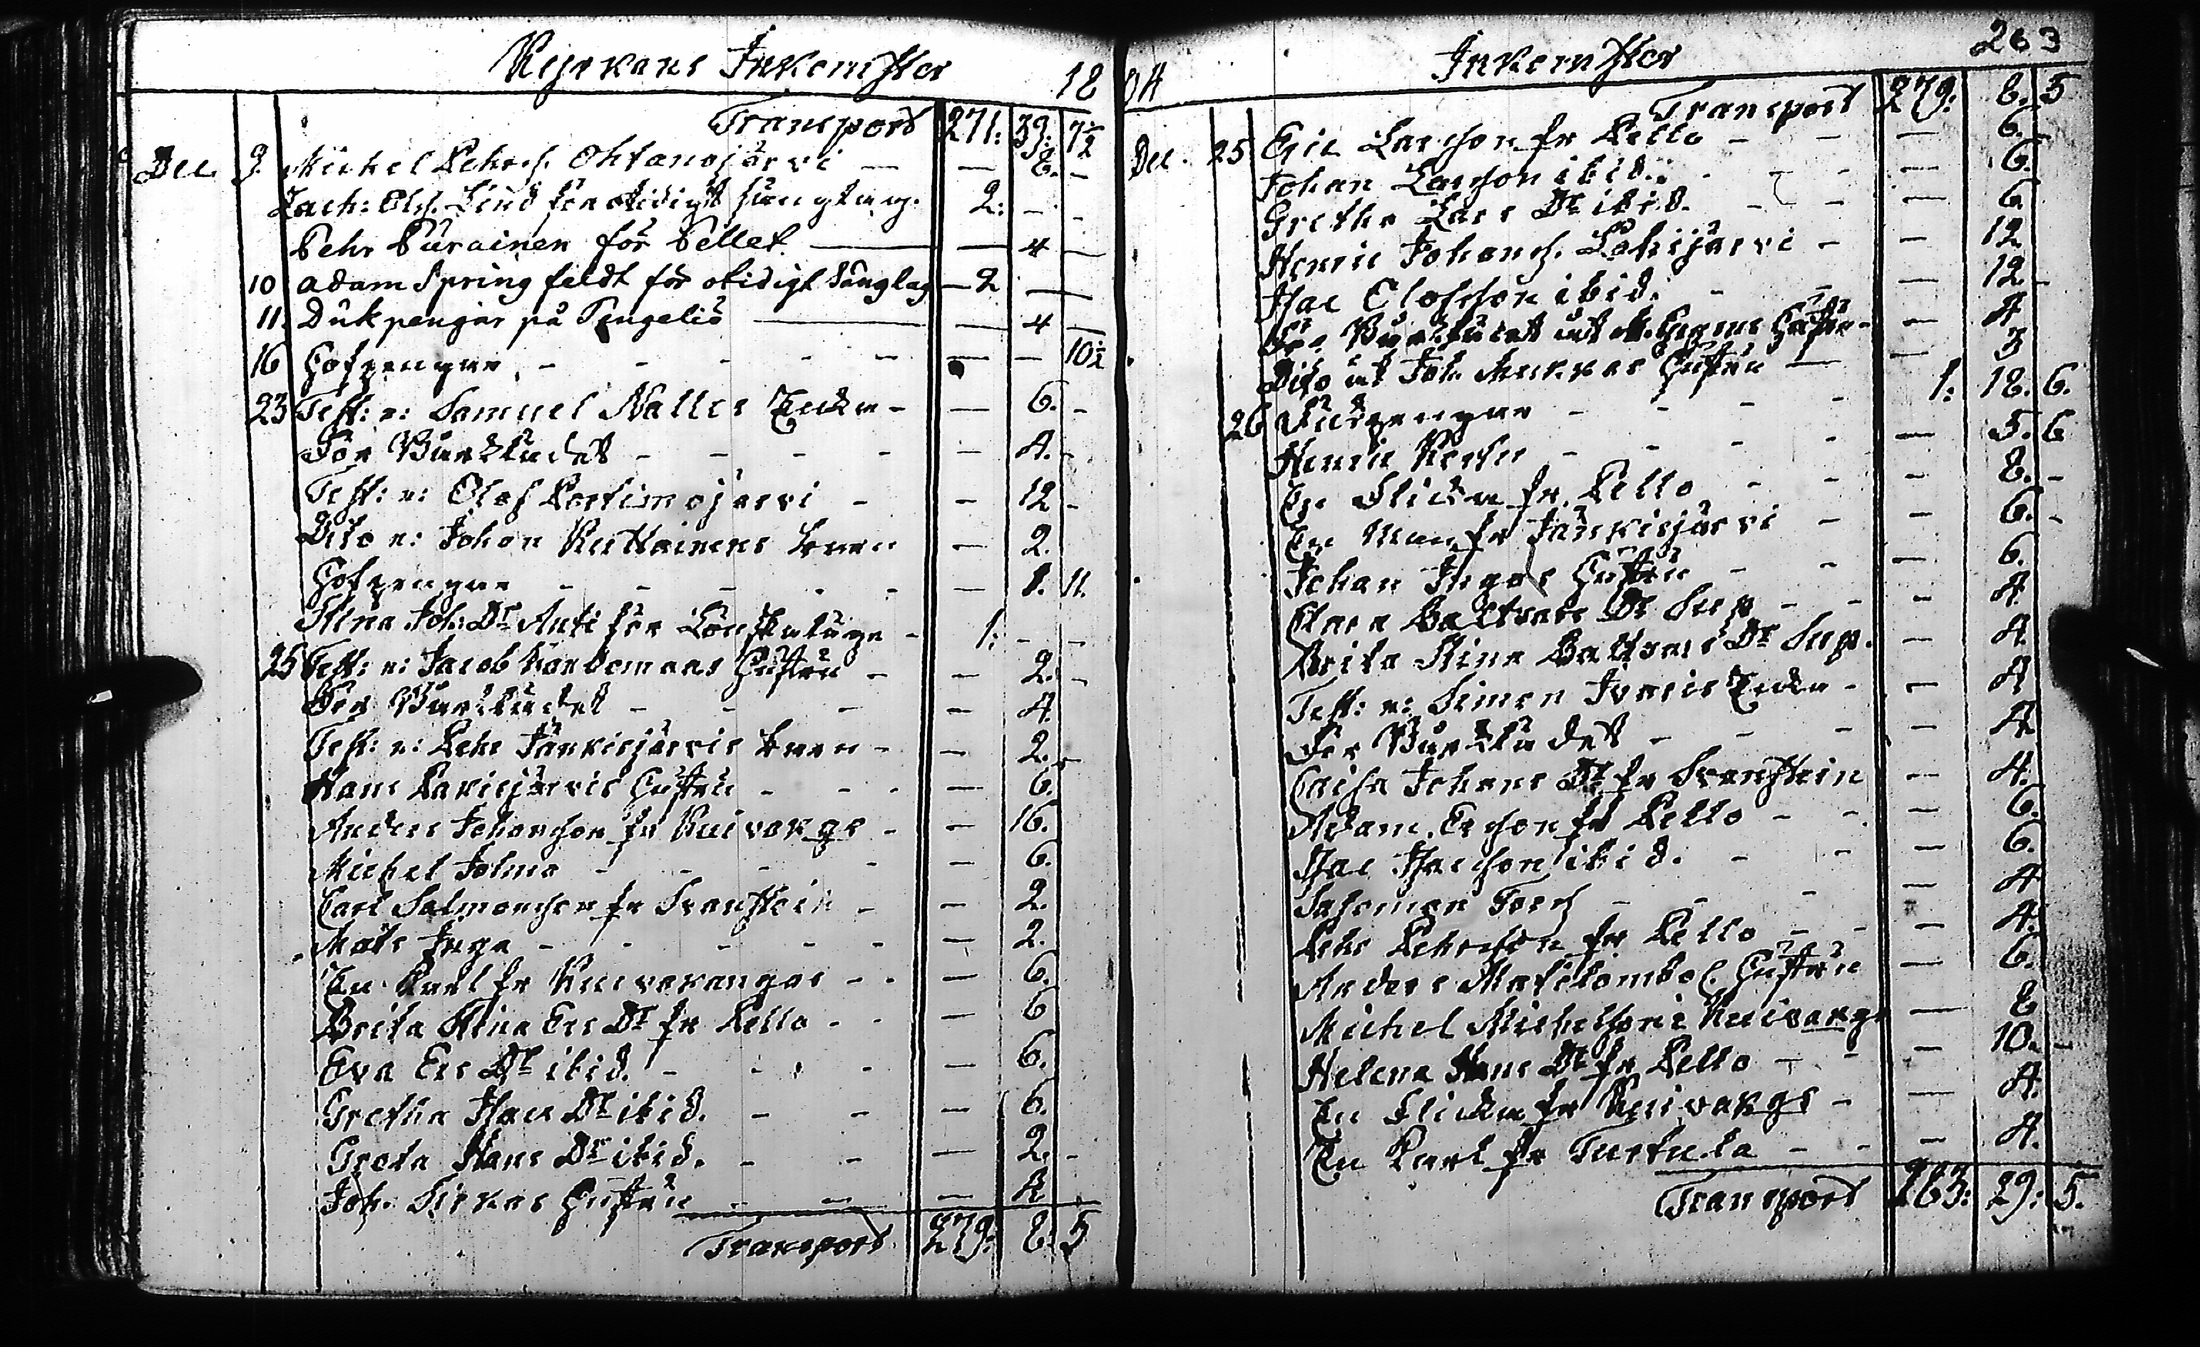 Kyrkans Inkomster 18
Transport 271: 39: 7½
Dec. 9. Michel Pehrs. Ohtanajärvi — — 6. —
Zach: Ols. Lind för otidigt sänglag. 2: - -
Pehr Purainen för Pellet — — 4 —
10 Adam Springfeldt för otidigt sänglag — 2 — —
11. Dukpengar på Pengeliö — — 4 —
16 Hofpengar - - - — — 10½
23 Test: e: Samuel Nallis Enka - — 6. -
För Bårklädet - - - - — 4. -
Test: e: Olof Portimojärvi - — 12 -
Dito e: Johan Ruttainens — 2.
Hofpengar - - - - — 1. 11.
Stina Joh: Dr Anti för - 1: - -
25 Test: e: Jacob Hustru - — 2. -
För Bårklädet - - - — 4.
Test: e: Pehr Jänkisjärvis - — 2. -
Hans Rakisjärvis Hustru - - - — 6.
Anders Johansson fr Kuivakgs - — 16.
Michel Jolma - - - - — 6.
Carl Salmonsson fr Svanstein - — 2.
Mats Inga - - - - - — 2.
En Karl fr Kuivakangas - - — 6.
Brita Stina Ers Dr fr Pello - - — 6
Eva Ers Dr ibid. - - - - — 6.
Gretha Isacs Dr ibid. - - — 6.
Greta Hans Dr ibid. - - — 2. -
Joh. Sirkas Hustru - - — 4
Transport 279: 8. 5
04 Inkomster 263
Transport 279: 8. 5
Dec. 25 Eric Larsson fr Pello - - — 6.
Johan Larsson ibid. - - - — 6.
Gretha Lars Dr ibid. - - — 6.
Henric Johans. Lohijärvi - — 12
Isac Olofsson ibid. - - — 12 -
För Bårklädet — 4
Dito åt Joh. Hustru — — 3
26 - - - - 1: 18. 6.
Henric - - - — 5. 6
En Flicka fr. Pello - - — 8. -
En Man fr Jänkisjärvi - — 6. -
Johan Ingas Hustru - - — 6.
Clara Baltsars Dr Siep - - — 4
Brita Stina Baltsars Dr Siep. — 4
Test: e: Simon Ivaris Enka - — 4
För Bårklädet - - - — 4
Caisa Johans Dr fr Svanstein — 4.
Adam Ersson fr Pello - - — 6.
Isac Isacsson ibid. - - — 6.
Salomon - - - — 4
Pehr Pehrsson fr Pello - - — 4.
Anders Matilombo Hustru — 6.
Michel Michelsson i Kuivakgs — 8
Helena Hans Dr fr Pello - - — 10. -
En Flicka fr Kuivakgs - — 4.
En Karl fr Turtula - - — 4.
Transport 283: 29: 5.